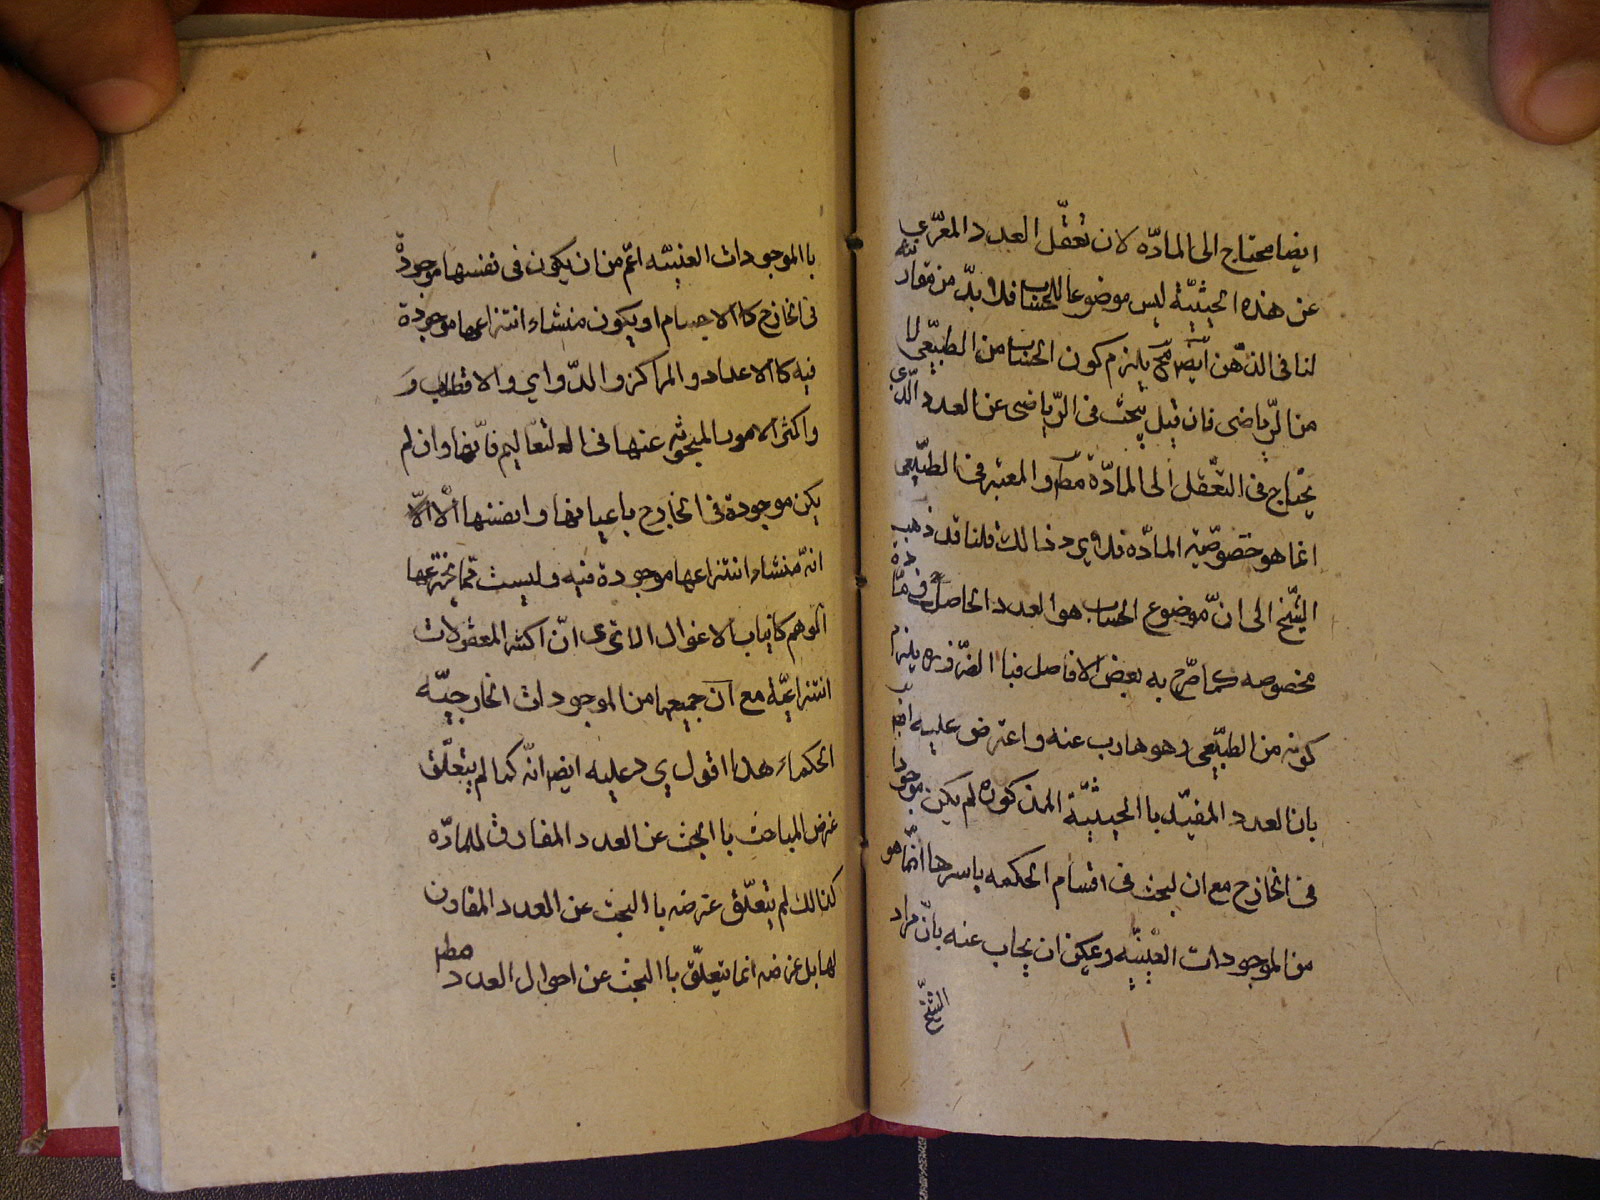 ايضا محتاج الى المادّه لان تعقّل العدد المعرّى
عن هذه الحيثيّة ليس موضوعا للحساب فلا بدّ من مقارنته
لنا فى الذّهن ايضا فح يلزم كون الحساب من الطبيعى لا
من الرّياضى فان قيل يبحث فى الرّياضى عن العدد الّذى
يحتاج فى التعّقل الى المادّة مط والمعتبر فى الطبيّعى
انما هو خصوصّيته المادّه فلا يرد ذالك قلنا قد ذهب
الشّيخ الى انّ موضوع الحساب هو العدد الحاصل فى مادّة
مخصوصه كما صرّح به بعض الافاضل فبا الضّروره يلزم
كونه من الطبيّعى وهو هارب عنه واعترض عليه ايضا
بان العدد المقيّد با الحيثيّة المذكوره لم يكن موجودا
فى الخارج مع ان لبحث فى اقسام الحكمه باسرها انّما هو
من الموجودات العينيّه ويمكن ان يجاب عنه بانّ مراد
الشّيخ
با الموجودات العينيّه اعّم من ان يكون فى نفسها موجودة
فى الخارج كا الاجسام او يكون منشاء انتزاعها موجودة
فيه كا الاعداد والمراكز والدّواير والاقطاب و
واكثر الامور المبحوثه عنها فى التعاليم فانّها وان لم
يكن موجودة فى الخارج باعيانها وانفسها الّا
انّه منشاء انتزاعها موجودة فيه وليست ممّا يخترعها
الوهم كانياب الاغوال الا ترى انّ اكثر المعقولات
انتزاعيّة مع انّ جميعها من الموجودات الخارجيّه
الحكماء هذا اقول يرد عليه ايضا انّه كما لم يتعلّق
غرض المباحث با البحث عن العدد المفارق للمادّه
كذالك لم يتعلّق غرضه با البحث عن العدد المقارن
لها بل غرضه انما يتعلّق با البحث عن احوال العدد مط